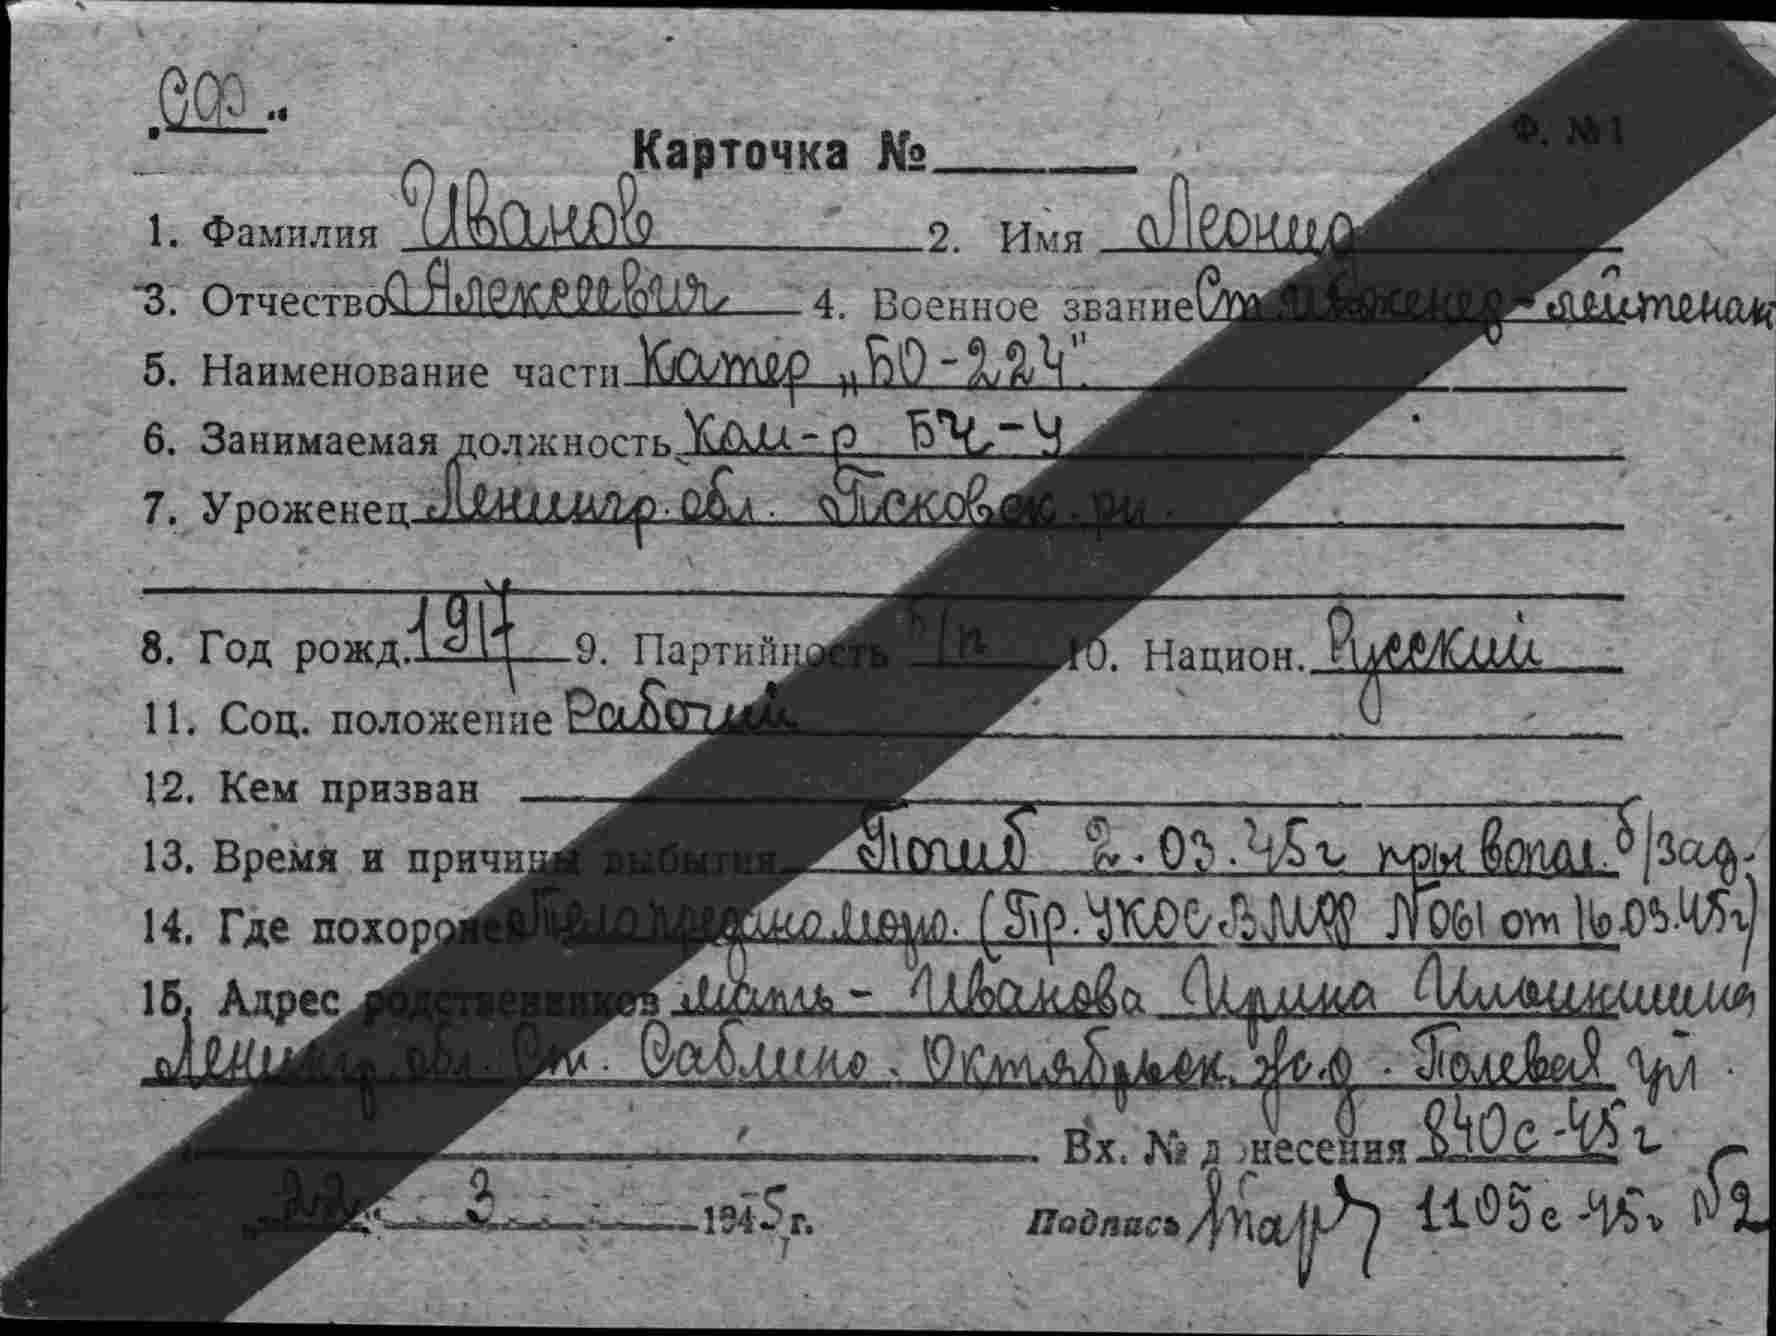 СФ "
Ф. №1
Карточка №
1. Фамилия Иванов 2. Имя Леонид
3. Отчество Алексеевич 4. Военное звание Ст инженер-лейтенант
5. Наименование части Катер „БО-224".
6. Занимаемая должность Ком-р БЧ-
7. Уроженец Ленингр. обл. Псковск. рн.
8. Год рожд. 1917 9. Партийность б/п 10. Национ. Русский
11. Соц. положение Рабочий
12. Кем призван
13. Время и причины выбытия Погиб 2.03.45г при вопол. б/зад.
14. Где похоронен Тело предано морю. (Пр. УКОС ВМФ №061 от 16.03.45г)
15. Адрес родственников мать - Иванова Ирина
Ленингр. обл. Ст. Саблино. Октябрьск. ж.д. Полевая ул.
Вх. № донесения 840с-45г
22 3 1945 г. Подпись 1105с-45г №2